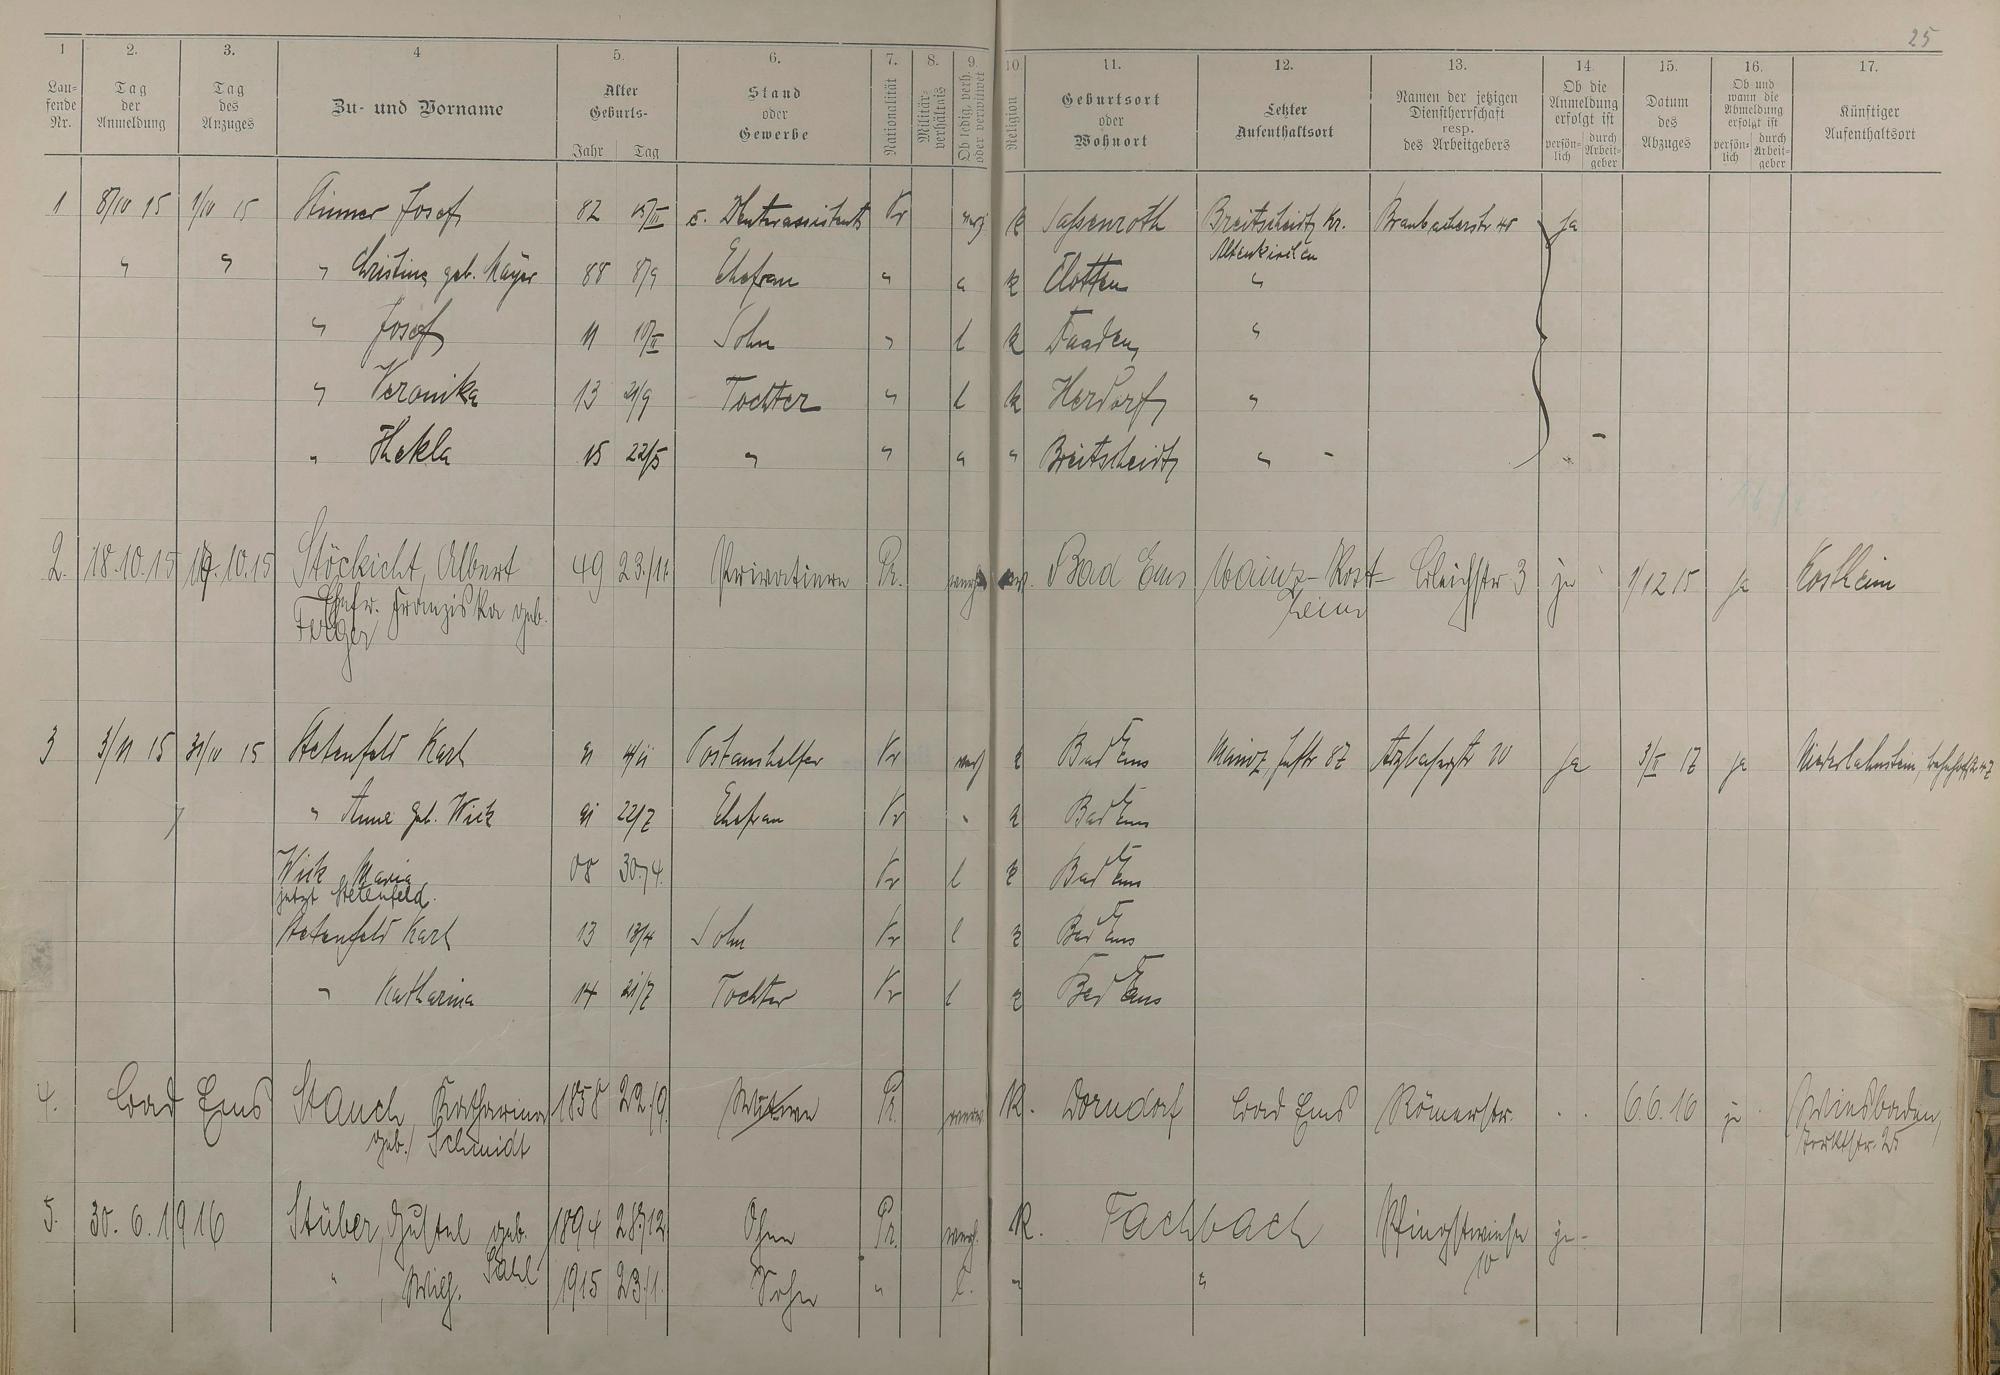 25
1 2. 3. 4 5. 6. 7. 8. 9. 10 11. 12. 13. 14. 15. 16. 17.
Lau-
fende
Nr.
Tag
der
Anmeldung
Tag
des
Anzuges
Zu- und Vorname
Alter
Geburts-
Jahr Tag
Stand
oder
Gewerbe
Nationalität
Militär-
verhältnis
Ob ledig, verh.
oder verwitwet
Religion
Geburtsort
oder
Wohnort
Letzter
Aufenthaltsort
Namen der jetzigen
Dienstherrschaft
resp.
des Arbeitgebers
Ob die
Anmeldung
erfolgt ist
persön-
lich
durch
Arbeit-
geber
Datum
des
Abzuges
Ob und
wann die
Abmeldung
erfolgt ist
persön-
lich
durch
Arbeit-
geber
Künftiger
Aufenthaltsort
1 8/10 15 1/10 15 Josef 82 15/III Pr verh k Sassenroth Breitscheidt, Kr. Braubacherstr 45 ja
Altenkirchen
" " " Christine geb. Mayer 88 8/9 Ehefrau " " k Clotten "
" Josef 11 10/II Sohn " l k Daaden "
" Veronika 13 21/9 Tochter " l k Herdorf "
" Thekla 15 22/5 " " " " Breitscheidt "
2. 18.10.15 10.15 Stöckicht, Albert 49 23./11. Pr. Bad Ems Mainz-Kost- Bleichstr 3 ja 1/12 15 ja Kostheim
Ehefr. Franziska geb.
heim
3 3/11 15 31/10 15 Stetenfeld Karl 4/11 Postaushelfer Pr verh k Bad Ems Mainz 87 10 ja 3/II 17 ja Niederlahnstein,
" Anna geb. Wick 22/7 Ehefrau Pr " k Bad Ems
Wick Maria 08 30/4 Pr l k Bad Ems
jetzt Stetenfeld.
Stetenfeld Karl 13 13/4 Sohn Pr l k Bad Ems
" Katharina 14 21/7 Tochter Pr l k Bad Ems
4. Bad Ems Stauch, Katharina 1858 22./9. Witwe Pr. K. Dorndorf Bad Ems Römerstr. 6.6.16 ja Wiesbaden,
geb. Schmidt
25
5. 30. 6. 1916 Stüber, Gustel geb. 1894 28./12. Ohne Pr. verh. K. Fachbach Pfingstwiese ja
10
" Wilh. 1915 23./1. Sohn " l. " "